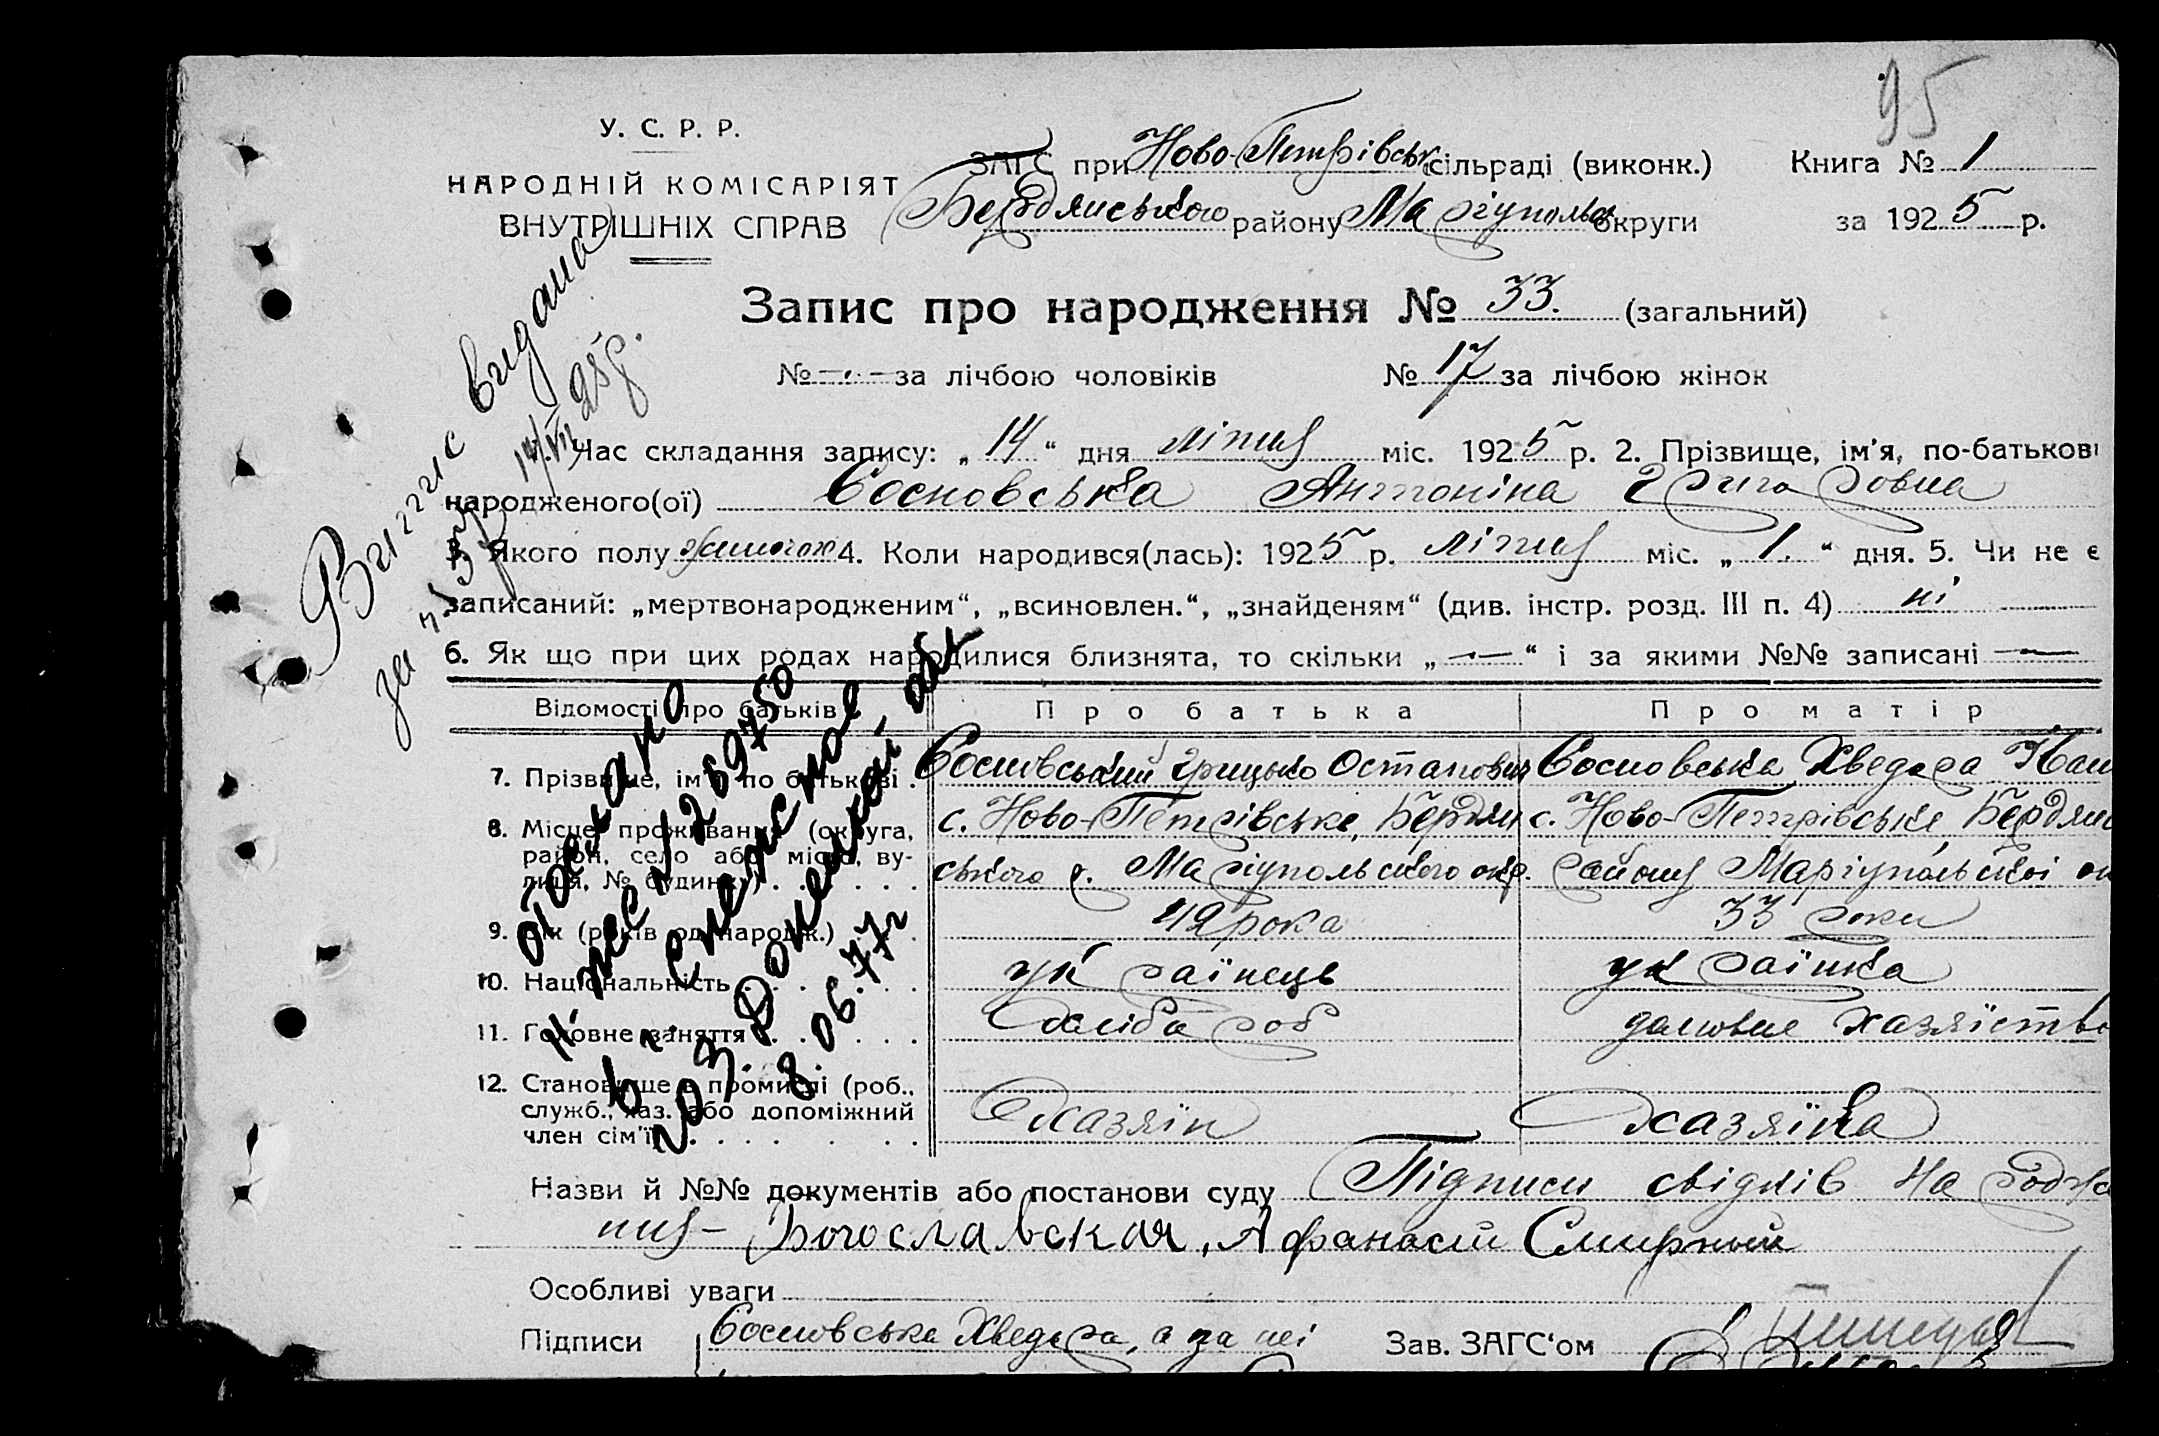 95
У. С. Р. Р.
НАРОДНІЙ КОМІСАРІЯТ
ВНУТРІШНІХ СПРАВ
ЗАГС при Ново-Петрівськ. сільраді (виконк.) Книга № 1
Бердянського району Маріупольс. округи за 1925 р.
Запис про народження № 33. (загальний)
№ — за лічбою чоловіків № 17 за лічбою жінок
1. Час складання запису: „14“ дня лютня міс. 1925 р. 2. Прізвище, ім'я, по-батькові
народженого(ої) Сосновська Антоніна Григоровна
3. Якого полу жиночого 4. Коли народився(лась): 1925 р. лютня міс. „1.“ дня. 5. Чи не є
записаний: „мертвонародженим“, „всиновлен.“, „знайденям“ (див. інстр. розд. III п. 4) ні
6. Як що при цих родах народилися близнята, то скільки „—“ і за якими №№ записані —
Відомості про батьків Про батька Про матір
7. Прізвище, ім'я, по батькові . Сосновський Грицько Остапович Сосновська Хведора
8. Місце проживання (округа, район, село або місто, вулиця, № будинку) . . . . . .
с. Ново-Петрівське, Бердян с. Ново-Петрівське, Бердянс
ського р. Маріупольського окр. району Маріупольскої ок
9. Вік (років од народж.) . . . 42 рока 33 роки
10. Національність . . . . . українець українка
11. Головне заняття . . . . . хлібороб домовне хазяїство
12. Становище в промислі (роб., служб., хаз. або допоміжний член сім'ї) . . . . . . хазяїн хазяїка
Назви й №№ документів або постанови суду Підписи свідків на
Богославская, Афанасий Смирный
Особливі уваги
Підписи Сосновська Хведора, а за неі Зав. ЗАГС‘ом
Виппис видана
за №
14/VII 25 р.
отослано
н. жес № 289750
в г. Снежное
гоз. Донецкой обл
8.06.77г